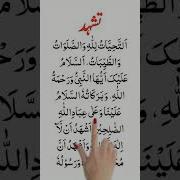 تشہد
اَلتَّحِيَّاتُ لِلّٰهِ وَالصَّلَوَاتُ
وَالطَّيِّبَاتُ، اَلسَّلَامُ
عَلَيْكَ أَيُّهَا النَّبِيُّ وَرَحْمَةُ
اللهِ وَبَرَكَاتُهُ السَّلَامُ
عَلَيْنَا وَعَلَى عِبَادِ اللهِ
الصّٰلِحِيْنَ أَشْهَدُ أَنْ لَّا
إِلٰهَ أَنَّ
وَرَسُولُهُ